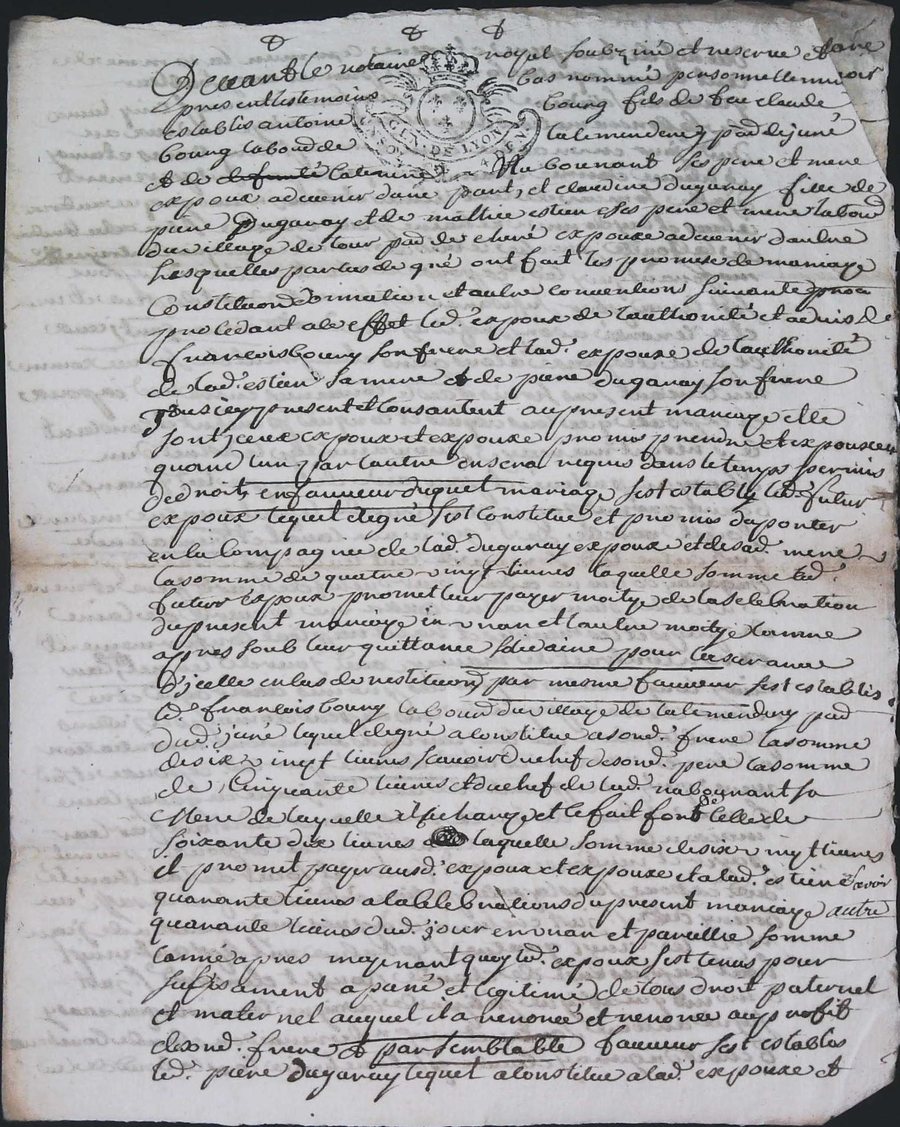 Devant le notaire royal soubzsigné et reservé
présent les temoins bas nommé personnellement
establis antoine bourg fils de feu claude
bourg laboud de lalemendery pad de juré
et de Caterine Nabournant ses pere et mere
expoux advenir dune part, et claudine duganay fille de
piere duganay et de estien ses pere et mere laboud
du village de tour pad de cheré expouxe advenir daultre
Lesquelles parties de gré ont fait les promese de mariage
Constitution donnation et aultre conventions suivante
procedant a le effet led. expoux de lauthorité et advis de
françois bourg son frere et lad. expouxe de lauthorité
de lad. estien sa mere et de piere duganay son frere
tous icy present et consantent au present mariage elle
sont iceux expoux et expouxe promis prendre et expouxer
quand lun par lautre en sera requis dans le temps permis
de droit, en faveur duquel mariage sest estably led. futur
expoux lequel de gré sest constitue et promis daporter
en la Compagnee de lad. duganay expouxe et de sad. mere
la somme de quatre vingt livres laquelle somme led.
futur expoux promet leur payer moitye de la selebration
du present mariage in un an et laultre moitye lannee
apres soub leur quittance pour lasurance
dicelle en cas de restitution par mesme faveur sest establis
led. françois bourg laboud du village de lalemendery pad
dud. juré lequel de gré a constitue a sond. frere la somme
de six vingt livres scavoir du chef de sond. pere la somme
de Cinquante livres et du chef de lad. nabournant sa
Mere de laquelle il se charge et le fait fort celle de
soixante dix livres laquelle somme de six vingt livres
il promet payer ausd. expoux et expouxe et a lad. estiene scavoir
quarante livres a la celebrations du present mariage autre
quarante livres dud. jour en un an et pareillie somme
lanné apres moyenant quoy led. expoux sest tenus pour
sufisament apané et legitimé de tous droit paternel
et maternel auquel il a renoncé et renonce au profit
de sond. frere et par semblable faveur sest establis
led. piere duganay lequel a constitue a lad. expouxe et